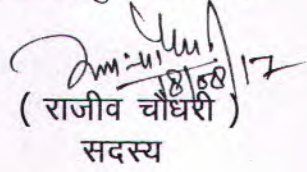 18/08/17
( राजीव चौधरी )
सदस्य